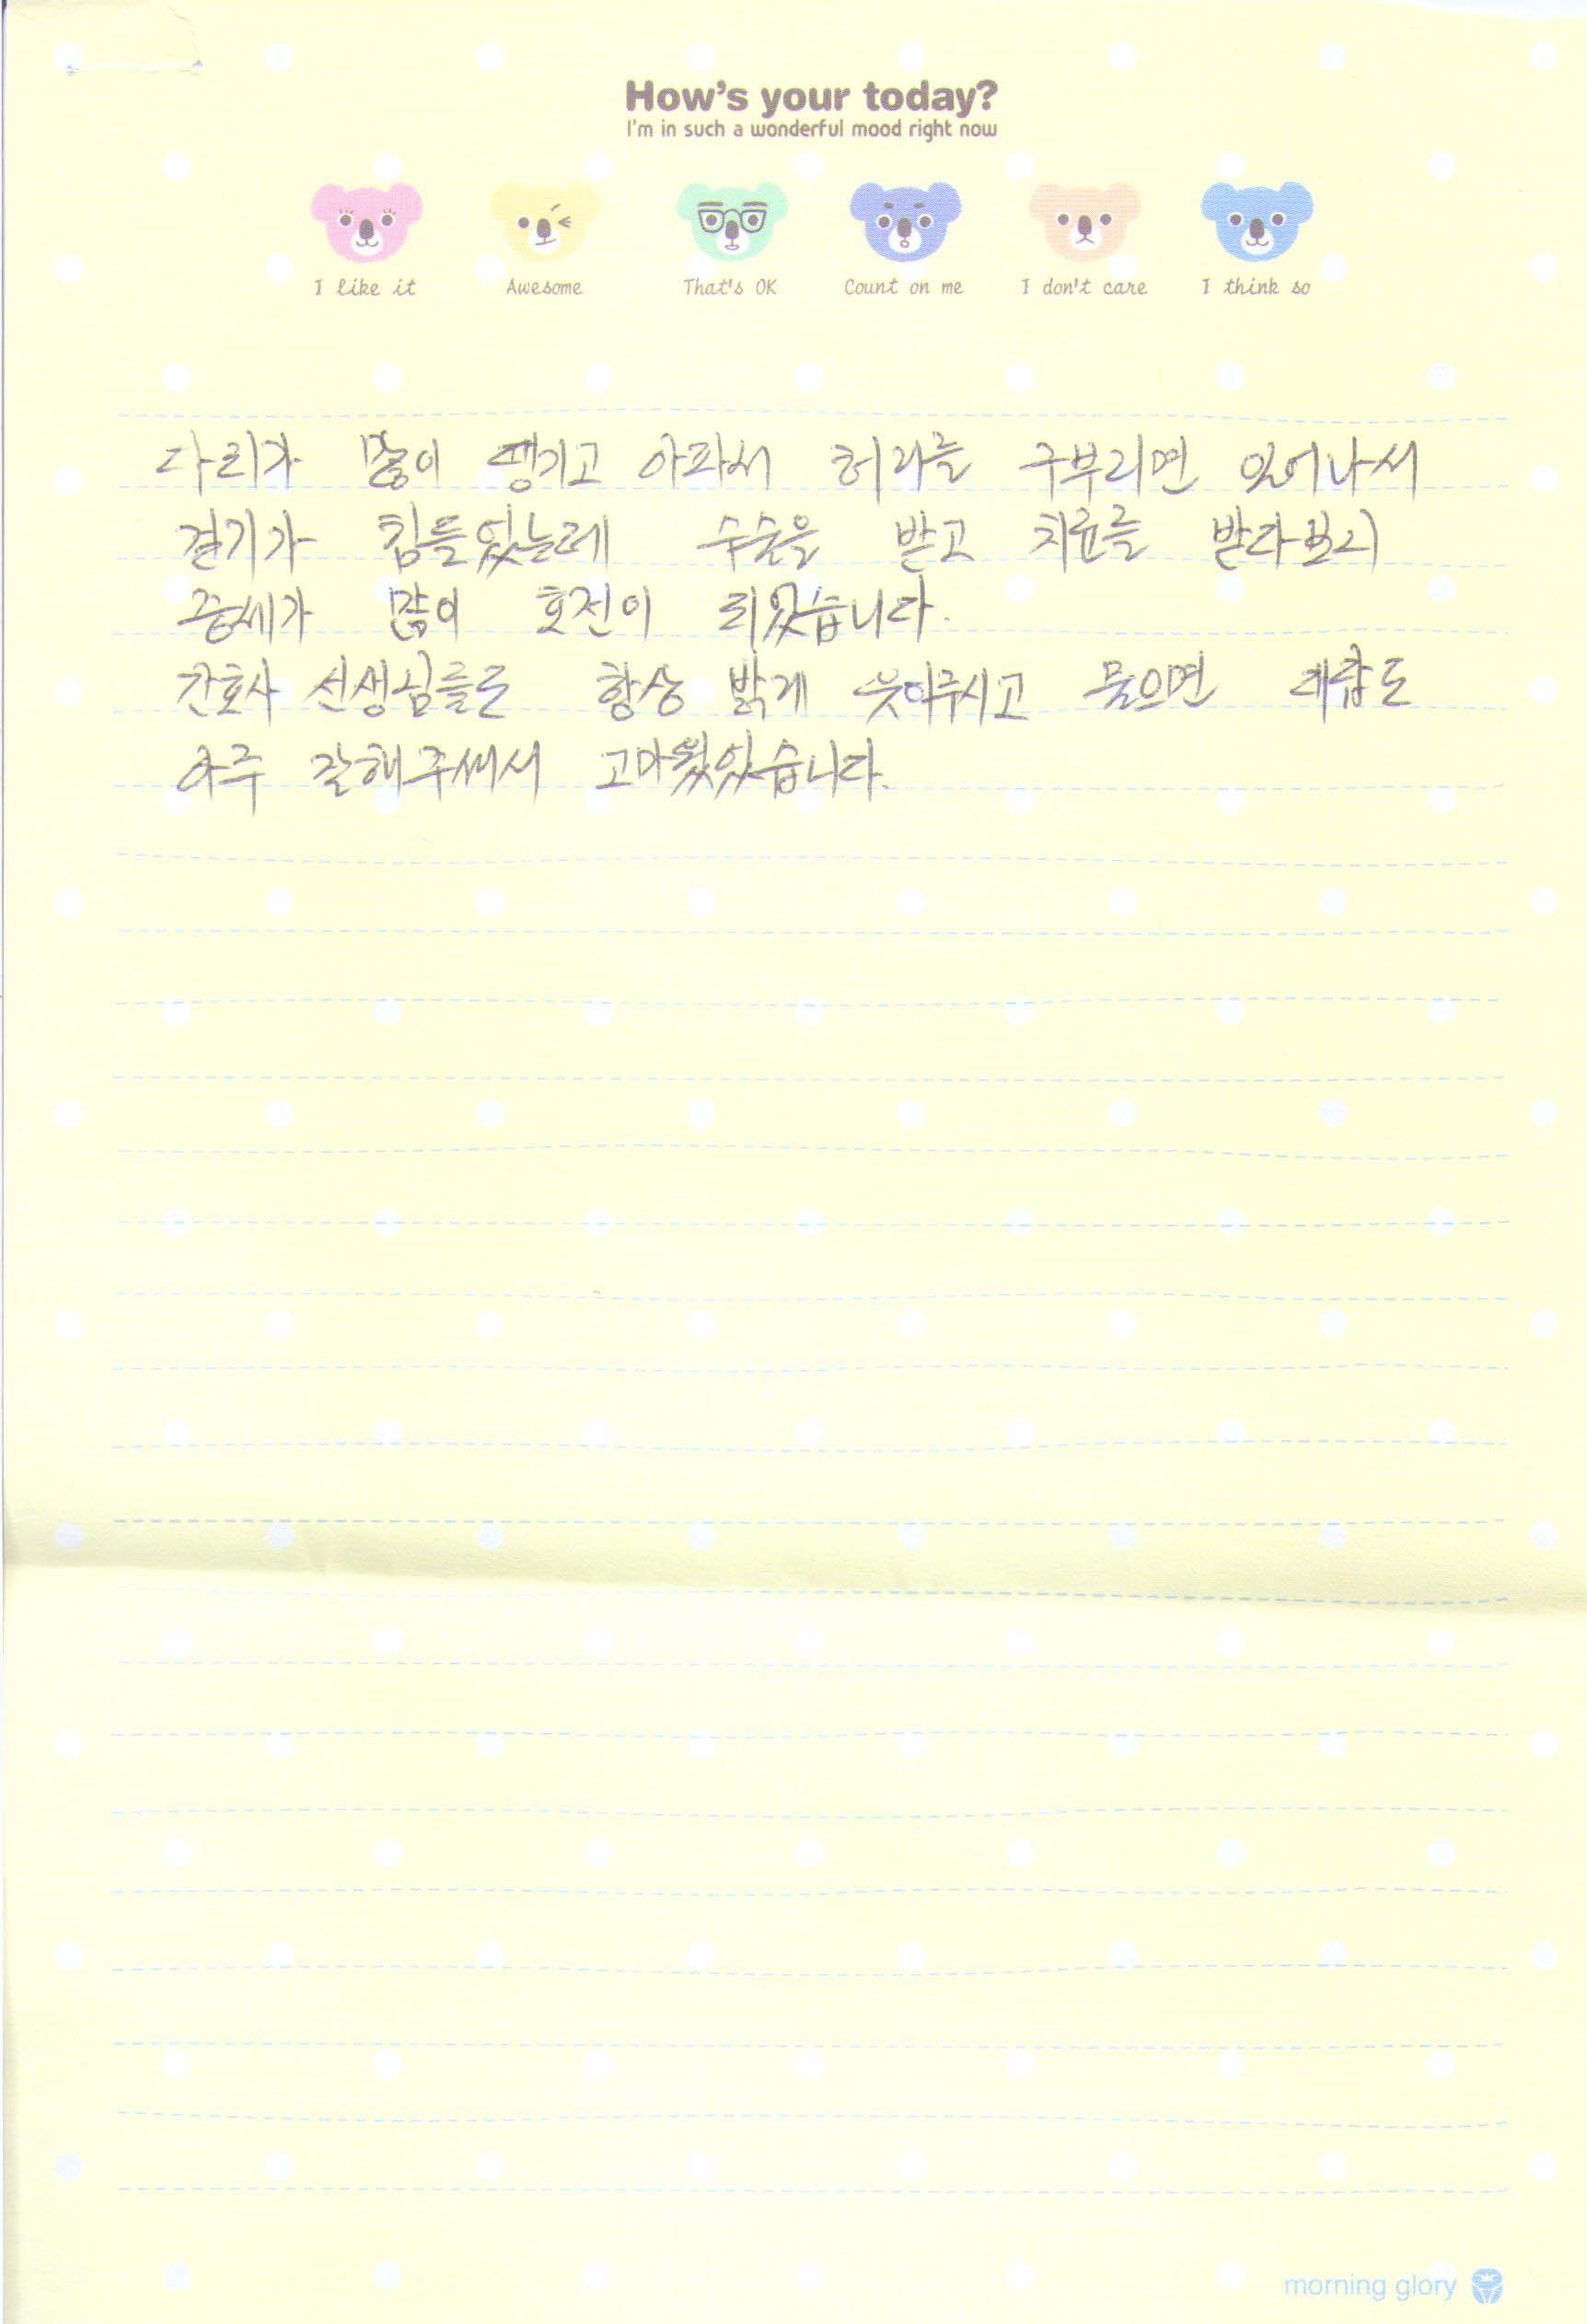 How's your today?
I'm in such a wonderful mood right now
I like it Awesome That's OK Count on me I don't care I think so
다리가 많이 땡기고 아파서 허리를 구부리면 일어나서
걷기가 힘들었는데 수술을 받고 치료를 받다보니
증세가 많이 호전이 되었습니다.
간호사 선생님들도 항상 밝게 웃어주시고 물으면 대답도
아주 잘해주셔서 고마웠었습니다.
morning glory